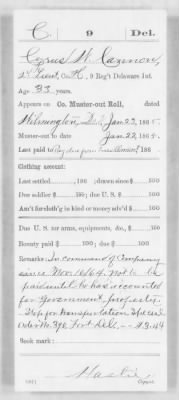 C. 9 Del.
Cyrus W. Cannon,
Lieut, Co. H, 9 Reg't Delaware Inf.
Age 33 years.
Appears on Co. Muster-out Roll, dated
Wilmington, Del, Jan 23, 1865.
Muster-out to date Jan 22, 1865.
Last paid to Pay due from Enrollment, 186
Clothing account:
Last settled, 186 ; drawn since $ 100
Due soldier $ 100 ; due U. S. $ 100
Am't for cloth'g in kind or money adv'd $ 100
Due U. S. for arms, equipments, &c., $ 100
Bounty paid $ 100 ; due $ 100
Remarks: In command of Company
since Nov. 10/64. Not to be
paid until he has accounted
for Government property.
Stop for transportation Special
Order No. 398 Fort Del.
Book mark:
Copyist.